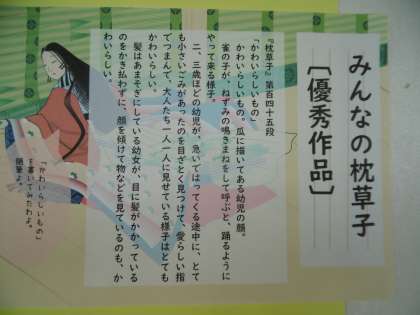 みんなの枕草子
［優秀作品］
『枕草子』第百四十五段
「かわいらしいもの」
かわいらしいもの。瓜に描いてある幼児の顔。
雀の子が、ねずみの鳴きまねをして呼ぶと、踊るように
やって来る様子。
二、三歳ほどの幼児が、急いではってくる途中に、とて
も小さいごみがあったのを目ざとく見つけて、愛らしい指
でつまんで、大人たち一人一人に見せている様子はとても
かわいらしい。
髪はあまそぎにしている幼女が、目に髪がかかっている
のをかき払わずに、顔を傾けて物などを見ているのも、か
わいらしい。
「かわいらしいもの」
を書いてみたわよ。
随筆よ。